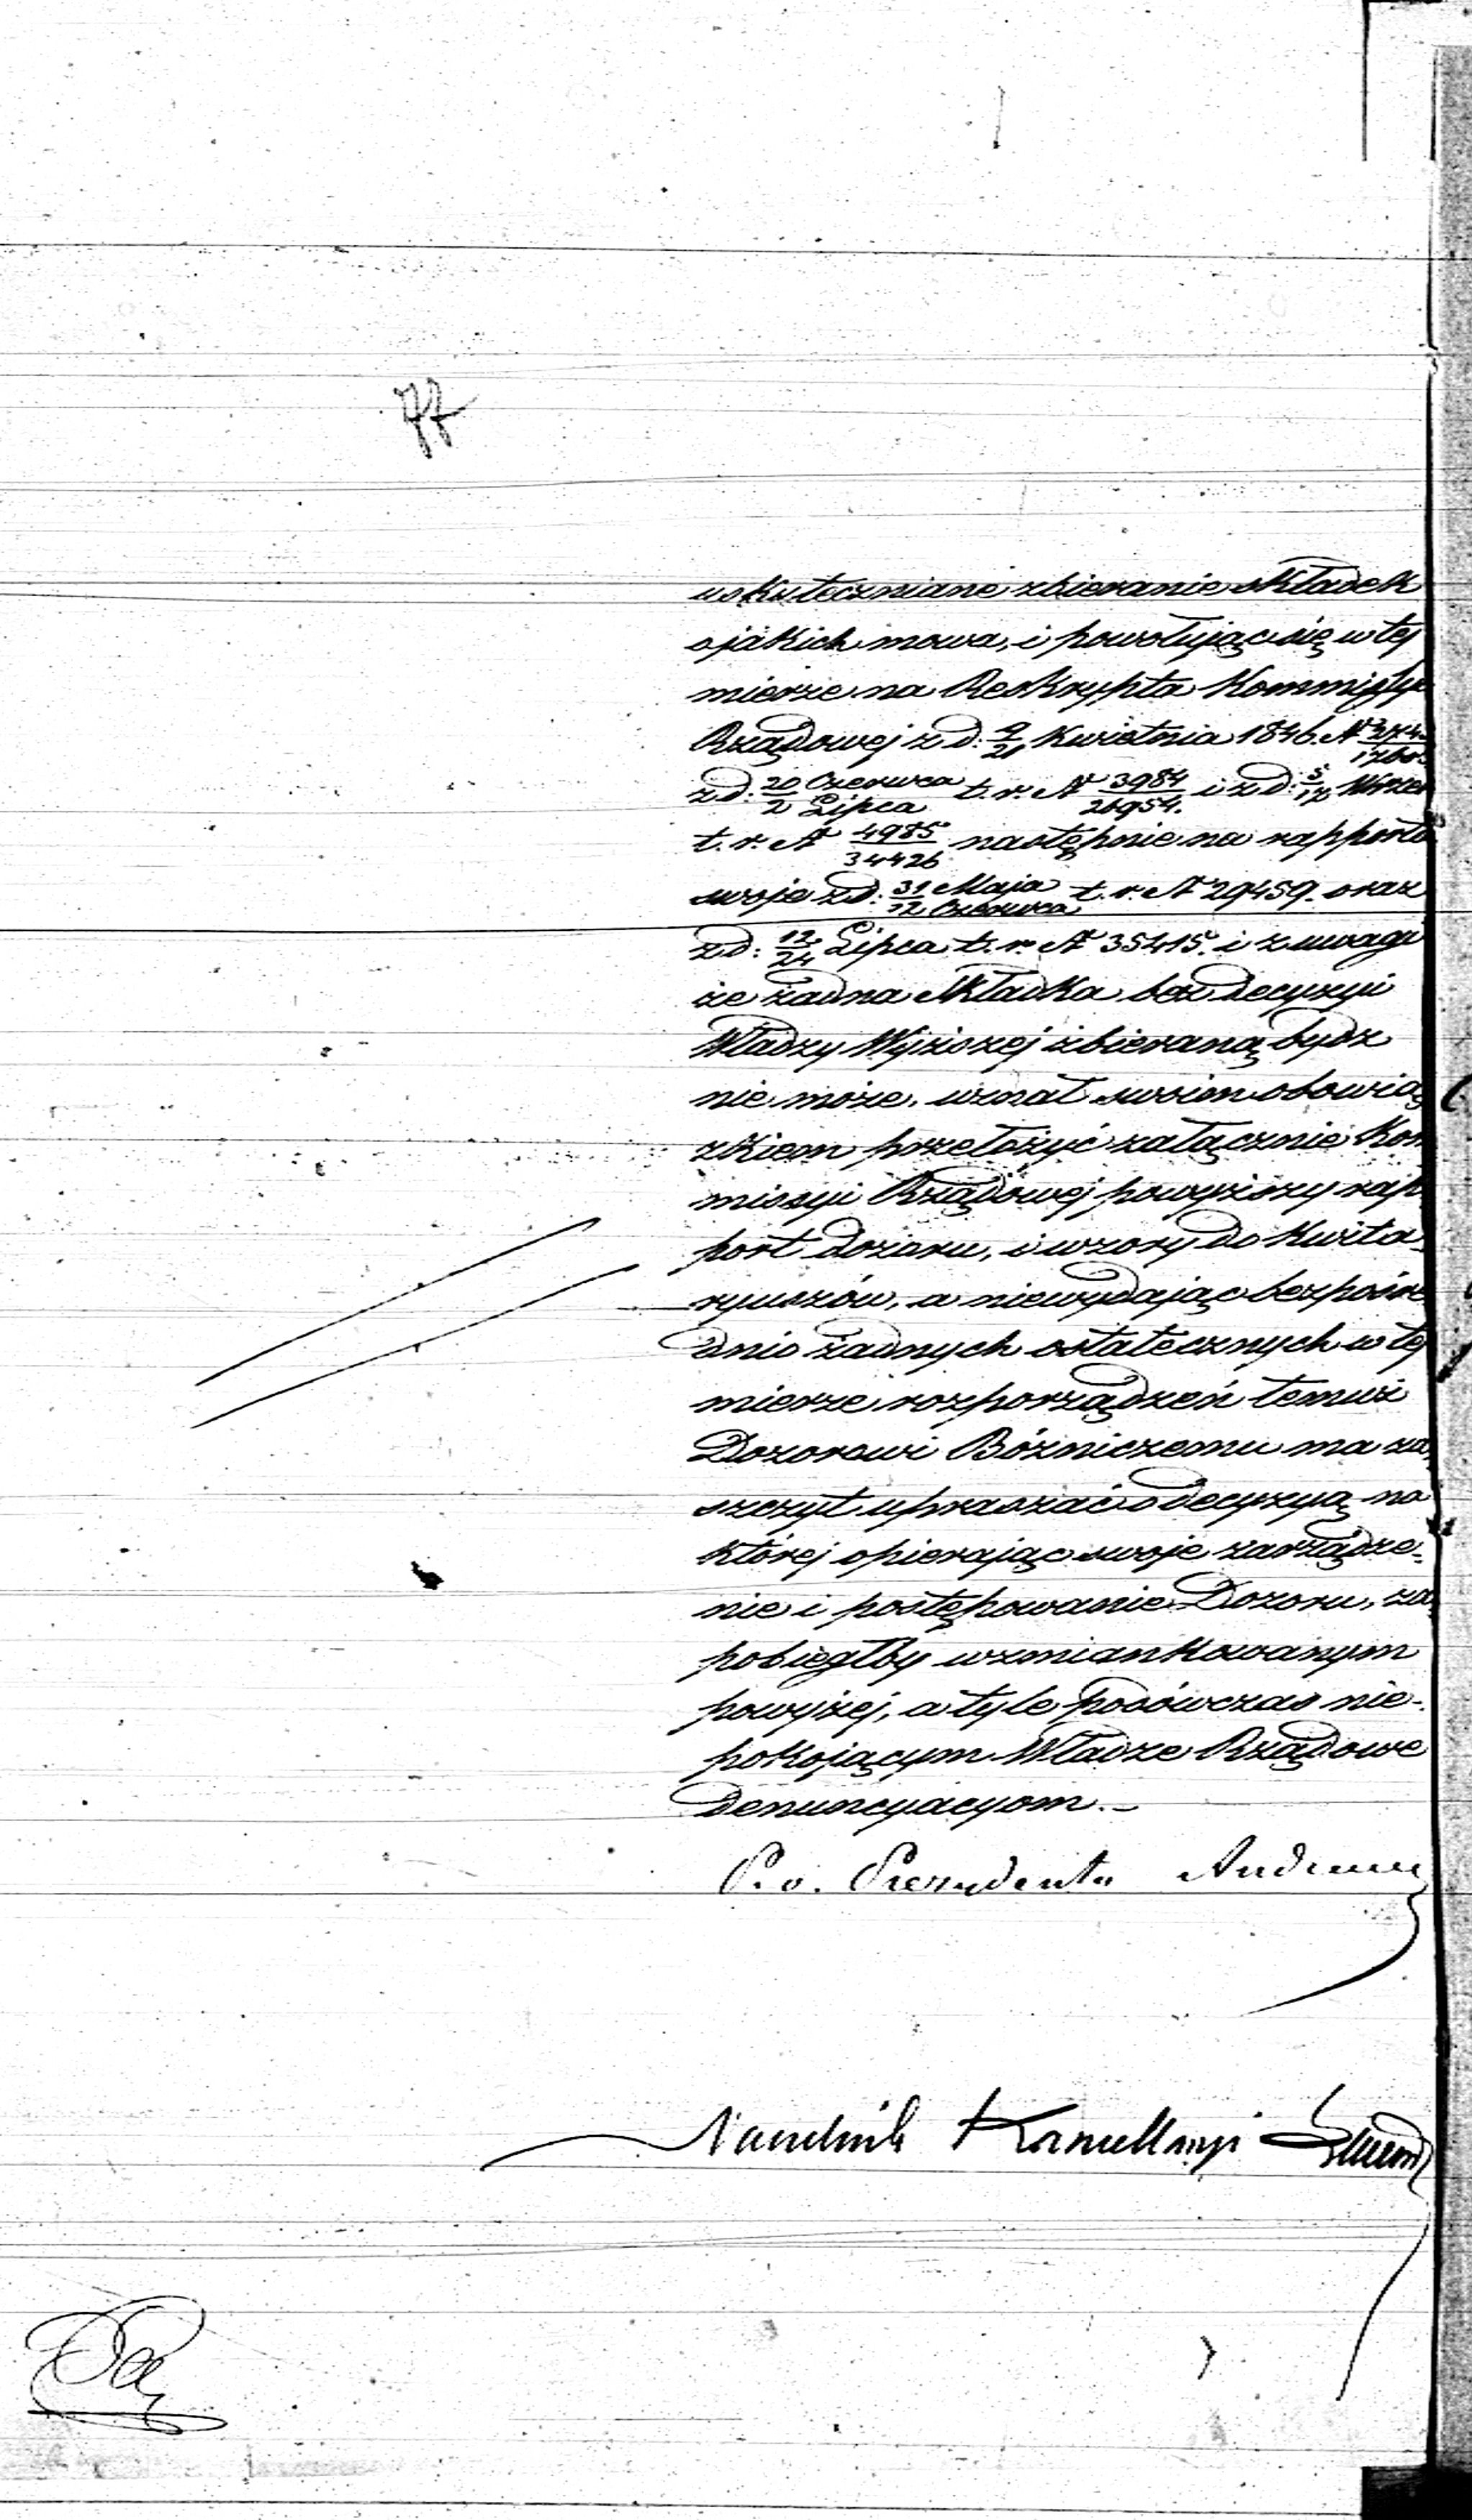 77
uskuteczniane zbieranie składek
o jakich mowa, i powołując się w tej
mierze na Reskrypta Kommissyi
Rządowej z d: 9/21 Kwietnia 1846. N
z d: 20 Czerwca/2 Lipca t. r. N 3984/26954. i z d: 5/17 Wrześ
t. r. N 4985/34426 następnie na rapporta
swoje z d: 31 Maja/12 Czerwca t. r. N 29459. oraz
z d: 12/24 Lipca t. r. N 35415. i z uwagi
że żadna składka bez decyzyi
Władzy Wyższej zbieraną bydź
nie może, uznał swoim obowią
zkiem przełożyć załącznie Kom
missyi Rządowej powyższy rap
port dozoru, i wzory do Kwita-
ryuszów, a niewydając bezpośre
dnio żadnych ostatecznych w tej
mierze rozporządzeń temuż
Dozorowi Bóżniczemu ma za
szczyt upraszać o decyzyą na
której opierając swoje zarządze-
nie i postępowanie Dozoru, za
pobiegłby wzmiankowanym
powyżej, a tyle podówczas nie-
pokojącym Władze Rządowe
denuncyacyom.
P. o. Prezydenta
Naczelnik Kancellaryi